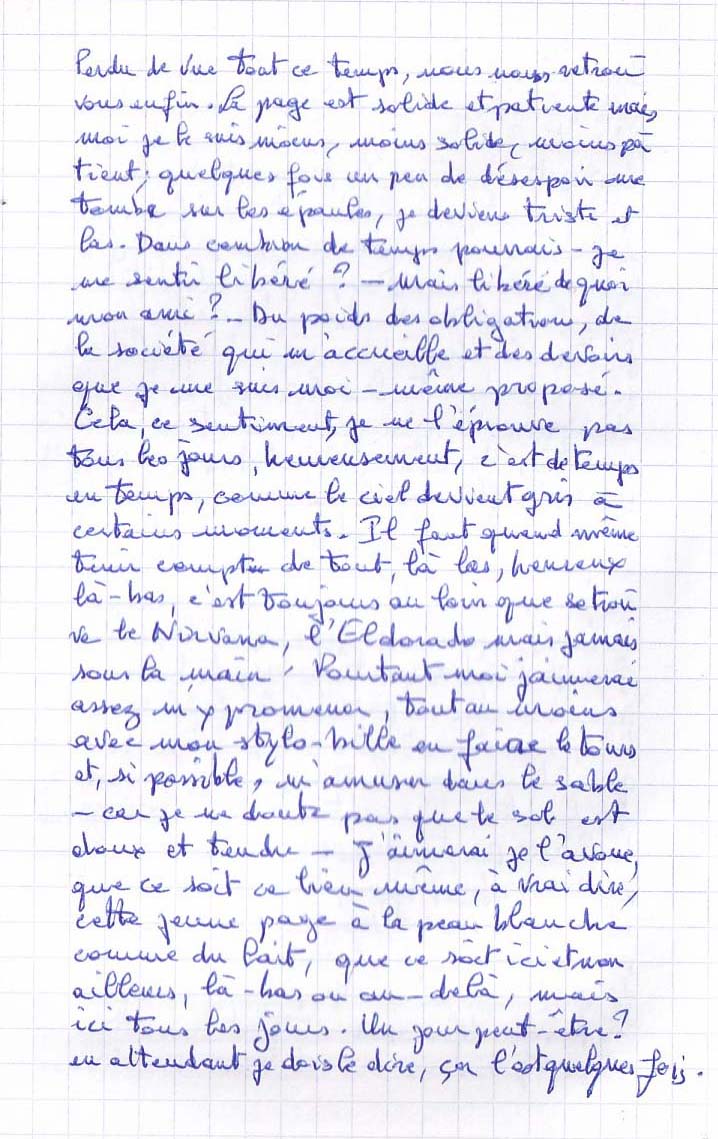 Perdu de vue tout ce temps, nous nous retrou
vons enfin. La page est solide et patiente mais
moi je le suis moins, moins solide, moins pa
tient; quelques fois un peu de désespoir me
tombe sur les épaules, je deviens triste et
las. Dans combien de temps pourrais-je
me sentir libéré ? - Mais libéré de quoi
mon ami ? - Du poids des obligations, de
la société qui m'accueille et des devoirs
que je me suis moi-même proposé.
Cela, ce sentiment, je ne l'éprouve pas
tous les jours, heureusement, c'est de temps
en temps, comme le ciel devient gris à
certains moments. Il faut quand même
tenir compte de tout, là las, heureux
là-bas, c'est toujours au loin que se trou
ve le Nirvana, l'Eldorado mais jamais
sous la main. Pourtant moi j'aimerai
assez m'y promener, tout au moins
avec mon stylo-bille en faire le tour
et, si possible, m'amuser dans le sable
- car je ne doute pas que le sol est
doux et tendre - J'aimerai je l'avoue,
que ce soit ce lieu même, à vrai dire,
cette jeune page à la peau blanche
comme du lait, que ce soit ici et non
ailleurs, là-bas ou au-delà, mais
ici tous les jours. Un jour peut-être ?
en attendant je dois le dire, ça l'est quelques fois.